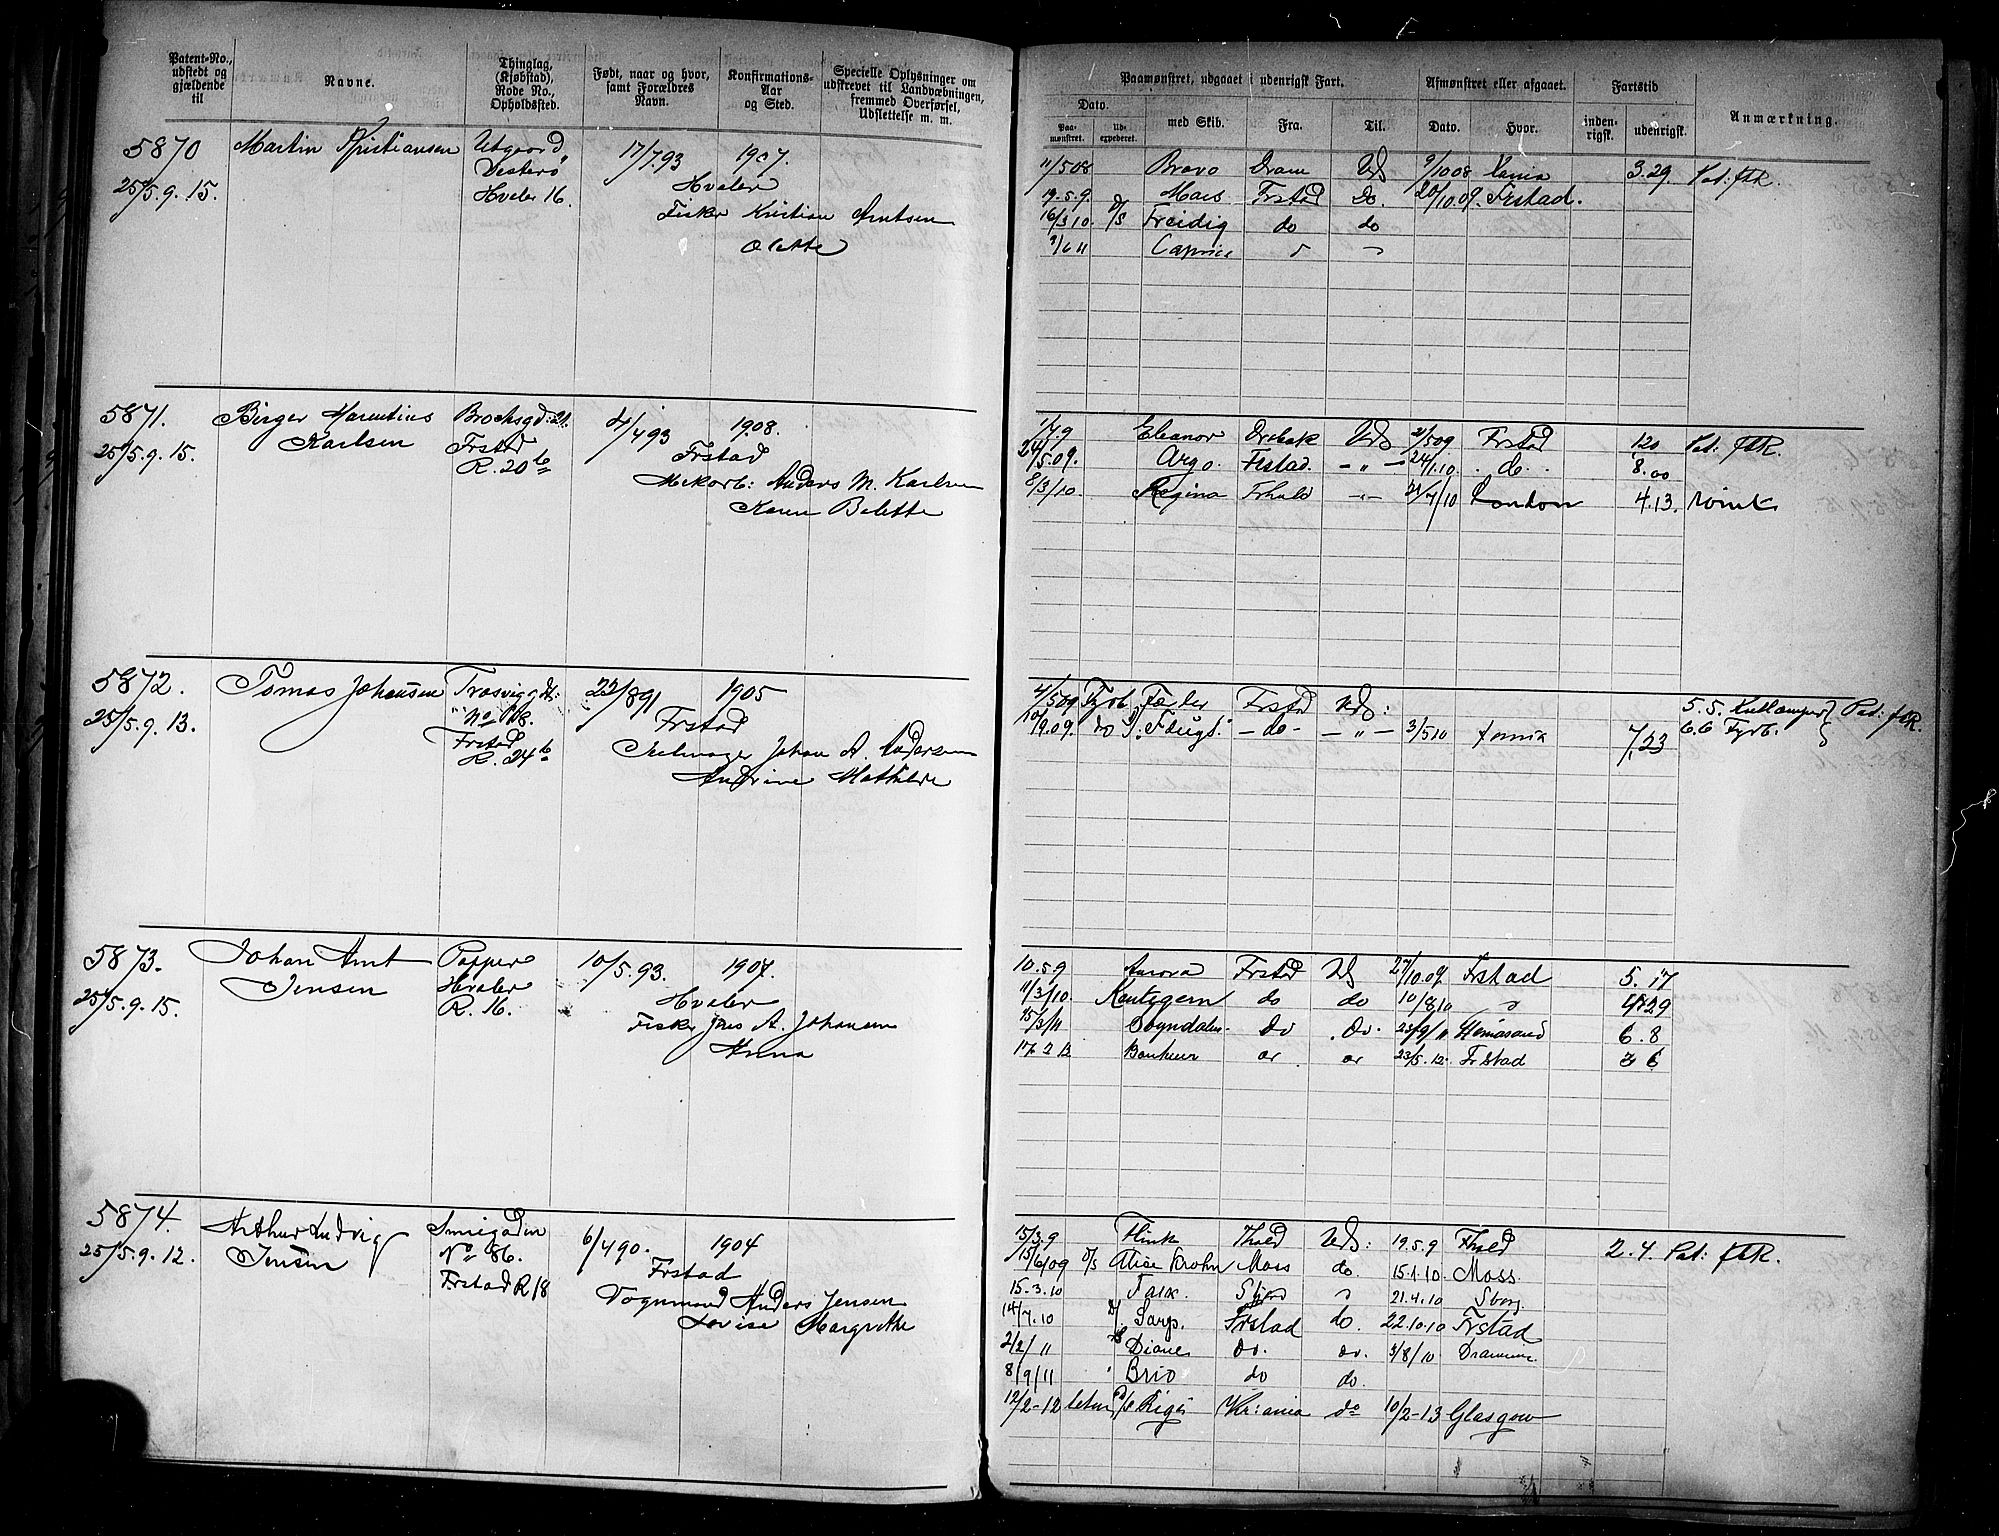 Patent-No., udstedt og gjældende til
Navne.
Thinglag, (Kjøbstad), Rode No., Opholdssted.
Født, naar og hvor, samt Forældres Navn.
Konfirmations-Aar og Sted.
Specielle Oplysninger om udskrevet til Landvæbningen, fremmed Overførsel, Udslettelse m. m.
5870 Martin Kristiansen Utgaard 17/7.93 1907.
25/5.9.15. Vesterø Hvaler
Hvaler 16. Fisker Kristian Arntsen
Olette
5871. Birger Marentius Brochsgd: 21. 4/4 93 1908.
25/5.9.15. Karlsen Frstad Frstad
R. 20 b Anders M. Karlsen
Karen Bolette
5872. Tomas Johansen Trosviggdt: 22/8 91 1905
25/5.9.13. No 108. Frstad
Frstad Johan A. Andersen
R. 24 b Andrine Mathilde
5873. Johan Arnt Papper 10/5.93. 1907.
25/5.9.15. Jensen Hvaler Hvaler
R. 16. Fisker Jens A. Johansen
Anna
5874. Arthur Ludvig Smigaden 6/4 90. 1904
25/5.9.12. Jensen No 86. Frstad
Frstad R 18 Vognmand Anders Jensen
Lovise Margrethe
Paamønstret, udgaaet i udenrigsk Fart.
Afmønstret eller afgaaet.
Fartstid
Anmærkning.
Dato.
Paa-mønstret.
Ud-expederet.
med Skib.
Fra.
Til.
Dato.
Hvor.
inden-rigsk.
udenrigsk.
11/5 08 Bravo Dram Uds 9/10 08 Kania 3.29. Pat: fÆR.
19.5.9. Mars Frstad Do. 20/10.09. Frstad.
16/3 10 D/S Freidig do do
9/6 11 Caprice
Eleanor Drøbak Uds 2/5 09 Frstad 120 Pat: fÆR.
/5.09. Argo. Frstad. — " — 24/1.10. do. 8.00
8/3/10. Regina Frhald — " — /7/10 London 4.13.
4/5 09 Fyrb. Færder Frstad Uds: 5.5. Kullemper Pat: fÆR.
/9.09. do do — " — 3/5 10 7,23 6.6 Fyrb.
10.5.9 Aurora Frstad Uds 27/10 09 Frstad 5. 17
11/3/10. Kentigern do do 10/8/10 " 4 29
15/3/11 Sogndalen do. do. 23/9/11 Hernøsand 6. 8
17 2 12 Bonheur 23/5.12. Frstad 3 6
15/3.9 Flink Fhald Uds: 19.5.9 Fhald 2.4. Pat: fÆR.
15/6/09 D/S Alice Krohn Moss do. 15.1.10. Moss.
15.3.10 Falk. 21.4.10 Sborg.
14/7.10 D/ Sarp. Frstad do. 22.10.10 Frstad
2/2/11 Diane do. do. 3/8/10 Drammen
8/9/11 " Brio do do.
12/2-12 D/S Rigi Kr:ania do 10/2-13 Glasgow